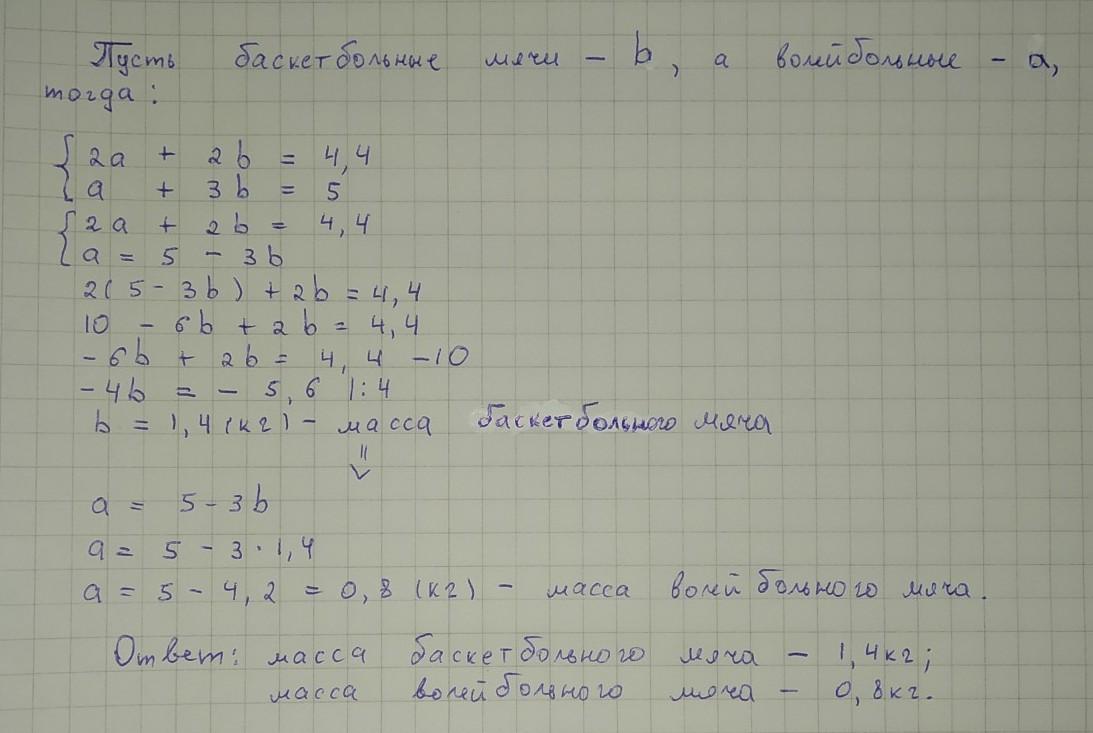 Пусть баскетбольные мячи - b, а волейбольные - a,
тогда:
{ 2a + 2b = 4,4
{ a + 3b = 5
{ 2a + 2b = 4,4
{ a = 5 - 3b
2(5 - 3b) + 2b = 4,4
10 - 6b + 2b = 4,4
-6b + 2b = 4,4 -10
-4b = - 5,6 |:4
b = 1,4 (кг) - масса баскетбольного мяча
=>
a = 5 - 3b
a = 5 - 3 · 1,4
a = 5 - 4,2 = 0,8 (кг) - масса волейбольного мяча.
Ответ: масса баскетбольного мяча - 1,4кг;
масса волейбольного мяча - 0,8кг.